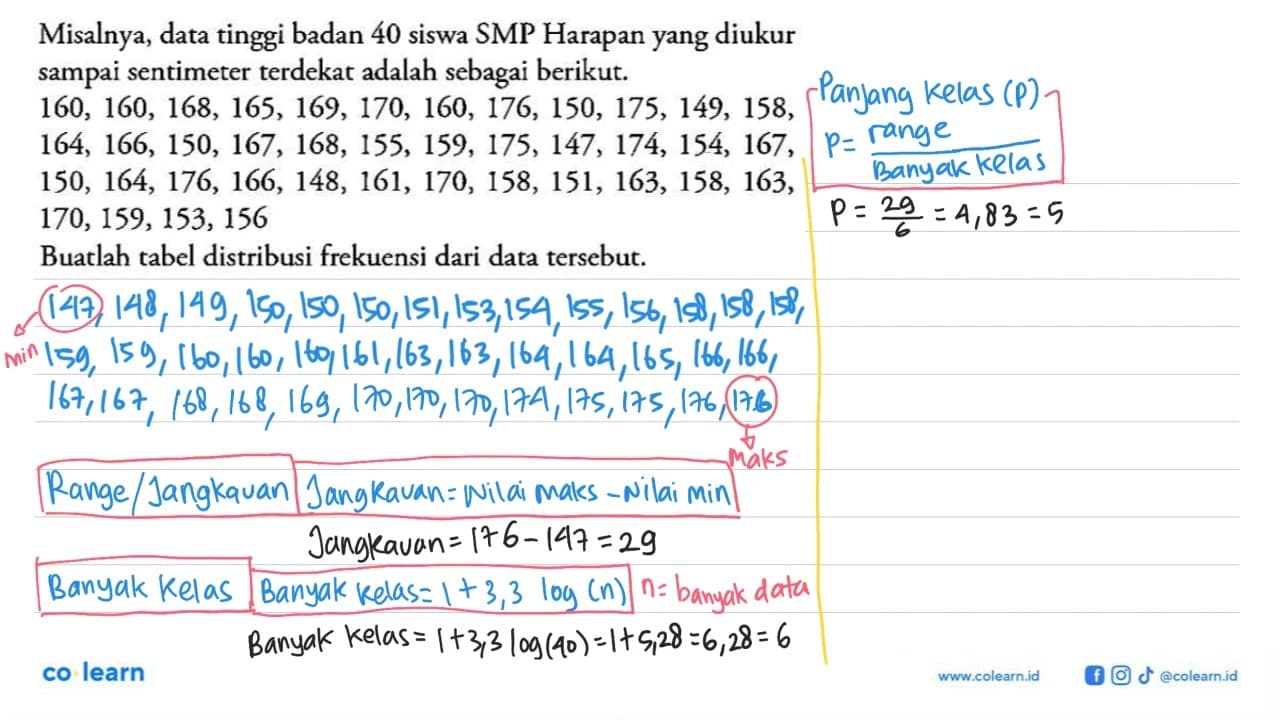 Misalnya, data tinggi badan 40 siswa SMP Harapan yang diukur
sampai sentimeter terdekat adalah sebagai berikut.
160, 160, 168, 165, 169, 170, 160, 176, 150, 175, 149, 158,
164, 166, 150, 167, 168, 155, 159, 175, 147, 174, 154, 167,
150, 164, 176, 166, 148, 161, 170, 158, 151, 163, 158, 163,
170, 159, 153, 156
Buatlah tabel distribusi frekuensi dari data tersebut.
147, 148, 149, 150, 150, 150, 151, 153, 154, 155, 156, 158, 158, 158,
min
159, 159, 160, 160, 160, 161, 163, 163, 164, 164, 165, 166, 166,
167, 167, 168, 168, 169, 170, 170, 170, 174, 175, 175, 176, 176
Maks
Range/Jangkauan Jangkauan = Nilai maks - Nilai min
Jangkauan = 176 - 147 = 29
Banyak Kelas Banyak kelas = 1 + 3,3 log (n) n = banyak data
Banyak kelas = 1 + 3,3 log (40) = 1 + 5,28 = 6,28 = 6
Panjang Kelas (P)
P = range
Banyak kelas
P = 29/6 = 4,83 = 5
co learn
www.colearn.id
@colearn.id